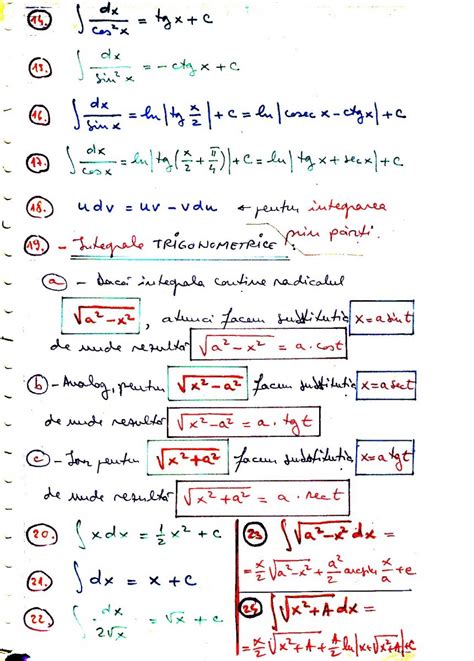 14. ∫ dx/cos²x = tg x + c
15. ∫ dx/sin²x = -ctg x + c
16. ∫ dx/sin x = ln|tg x/2| + c = ln|cosec x - ctg x| + c
17. ∫ dx/cos x = ln|tg(x/2 + π/4)| + c = ln|tg x + sec x| + c
18. u dv = uv - v du ← pentru integrarea prin părți.
19. - Integrale TRIGONOMETRICE
a - Dacă integrala conține radicalul
√a² - x², atunci facem substituția x = a sin t
de unde rezultă √a² - x² = a · cos t
b - Analog, pentru √x² - a² facem substituția x = a sec t
de unde rezultă √x² - a² = a · tg t
c - Iar pentru √x² + a² facem substituția x = a tg t
de unde rezultă √x² + a² = a · sec t
20. ∫ x dx = 1/2 x² + c
21. ∫ dx = x + c
22. ∫ dx/2√x = √x + c
23 ∫ √a² - x² dx =
= x/2 √a² - x² + a²/2 arcsin x/a + c
24 ∫ √x² + A dx =
= x/2 √x² + A + A/2 ln|x + √x² + A| + c